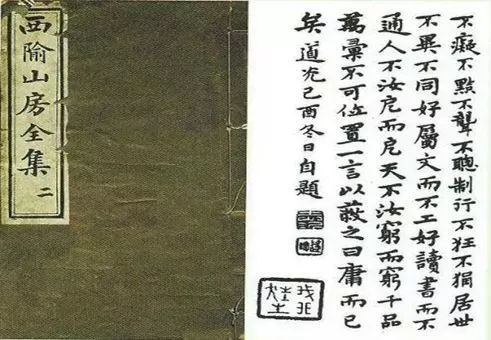 西隃山房全集 二
不癡不黠不聾不聰制行不狂不狷居世
不異不同好屬文而不工好讀書而不
通人不汝戹而戹天不汝窮而窮千品
萬彙不可位置一言以蔽之曰庸而已
矣 道光己酉冬日自題